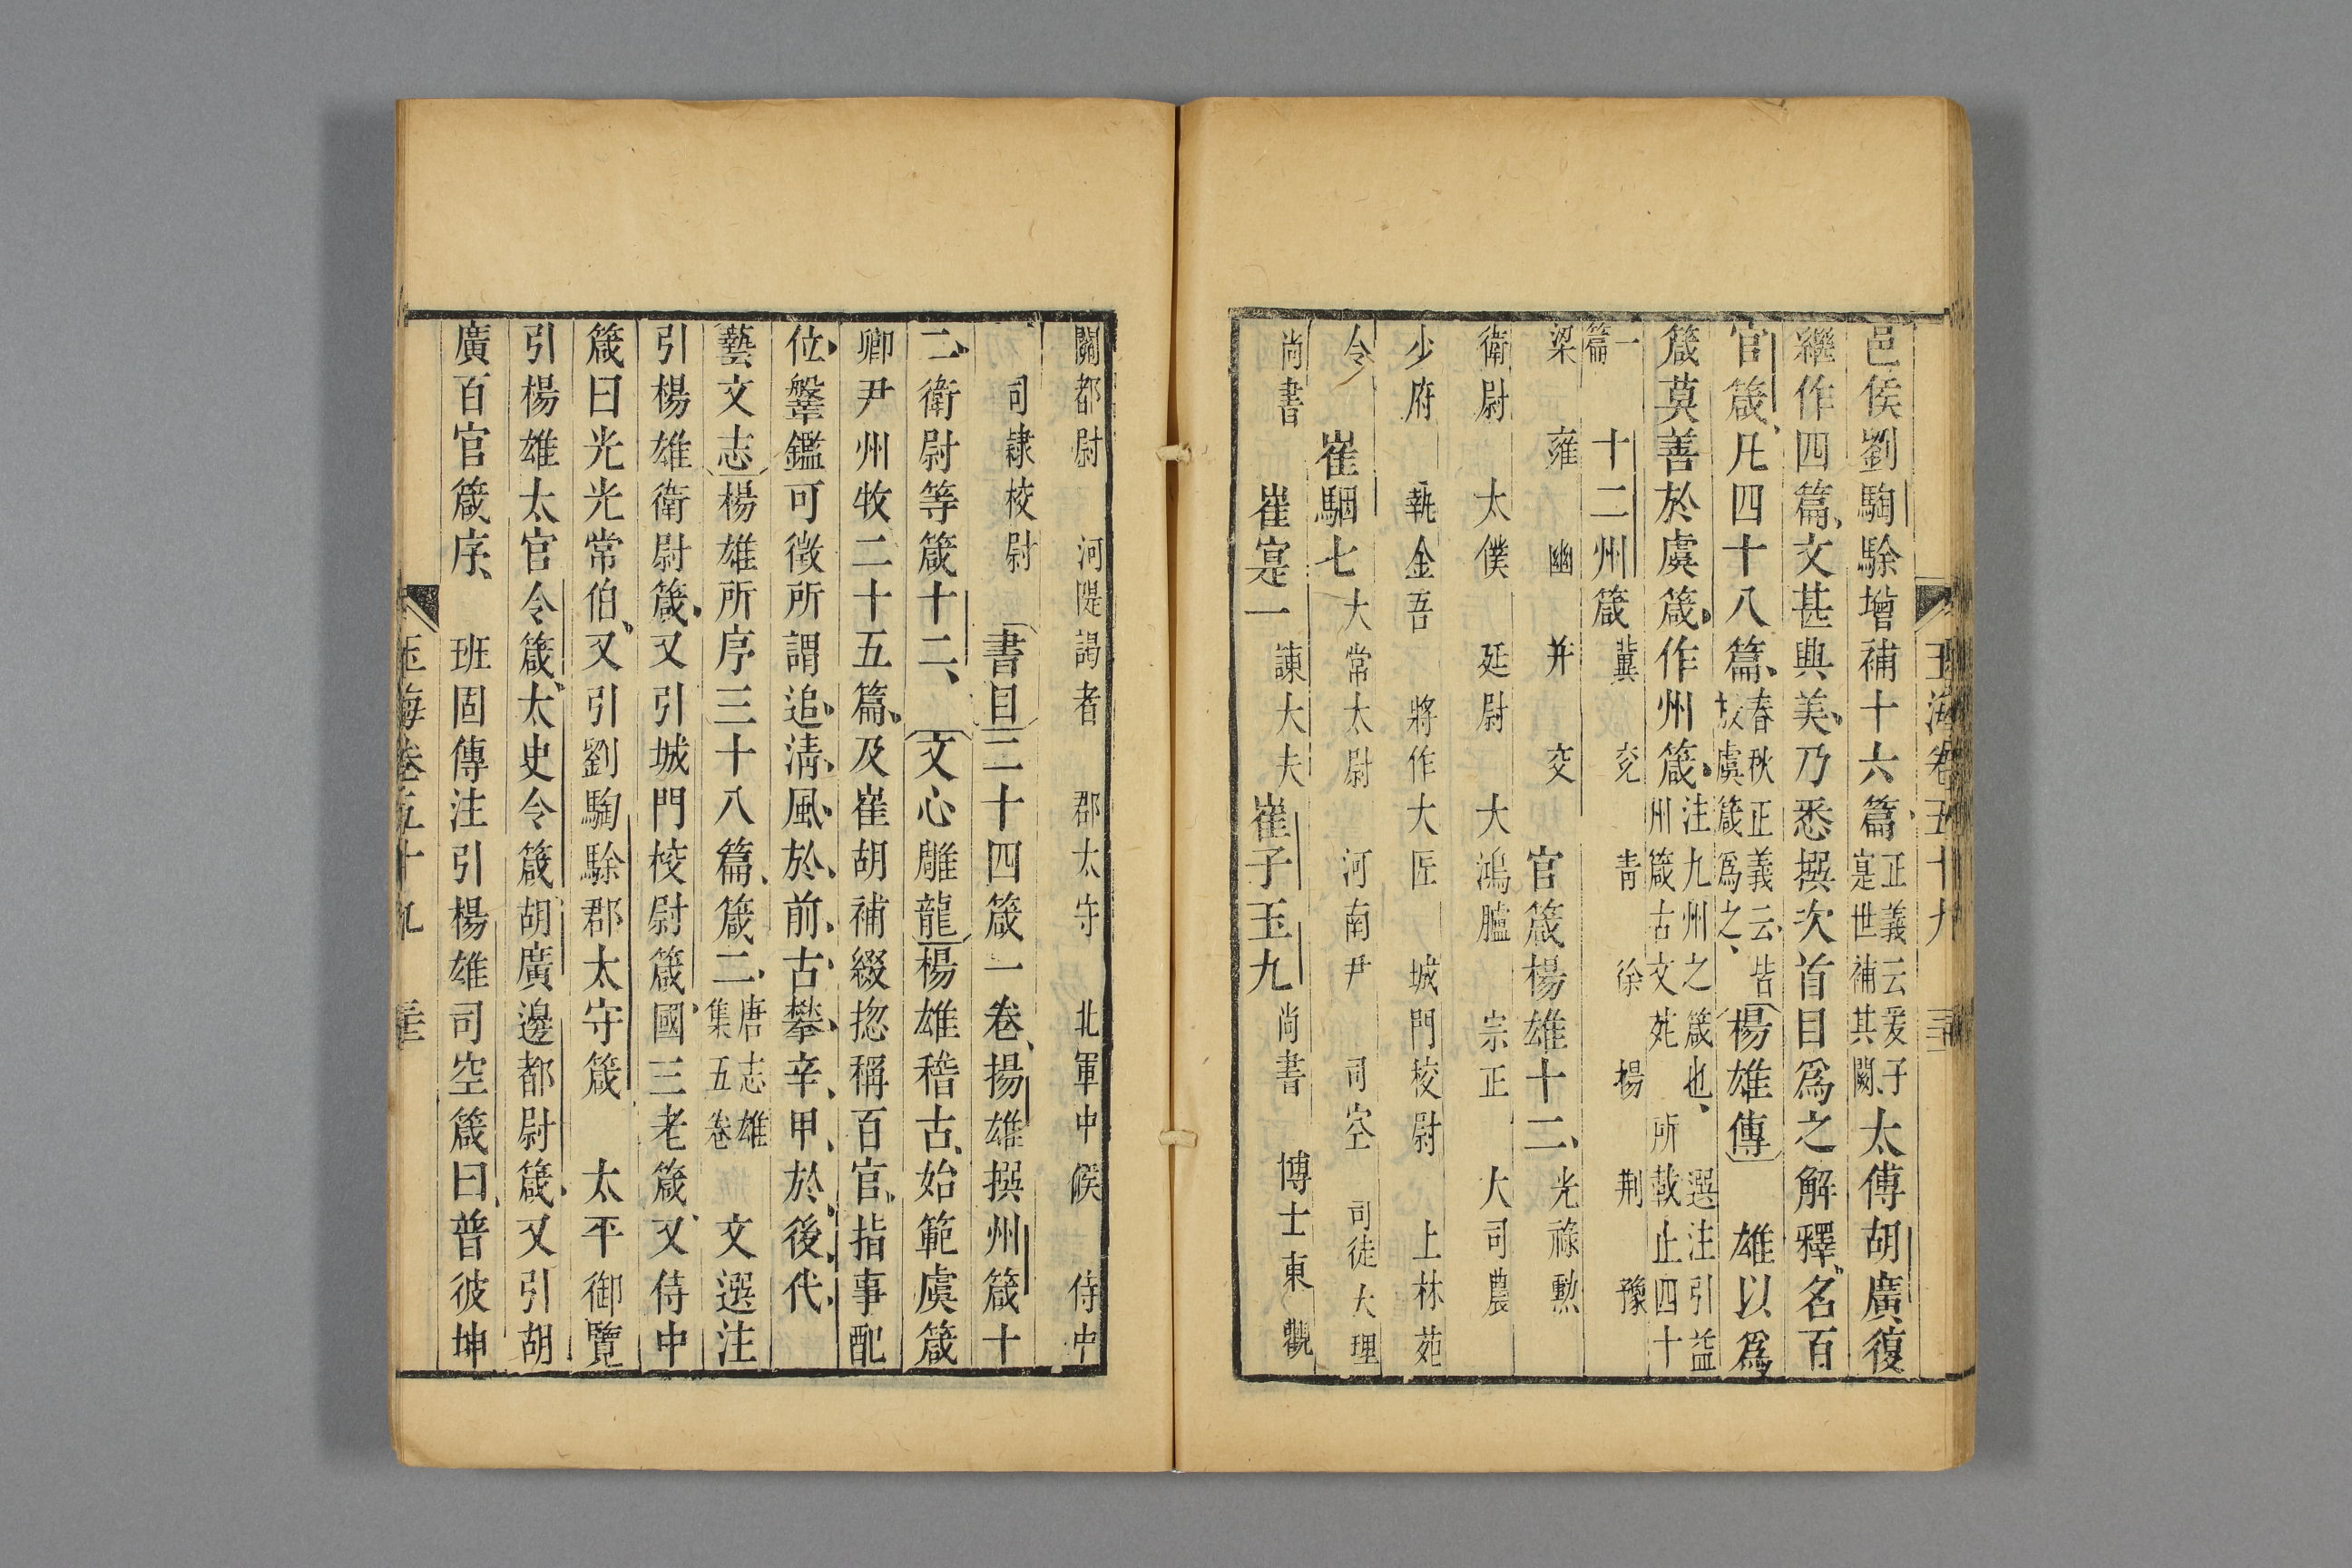 玉海卷五十九
邑侯劉騊駼增補十六篇正義云爰子寔世補其闕太傅胡廣復
繼作四篇文甚典美乃悉撰次首目爲之解釋名百
官箴凡四十八篇春秋正義云皆放虞箴爲之楊雄傳雄以爲
箴莫善於虞箴作州箴注九州之箴也選注引益州箴古文苑所載止四十
一篇十二州箴冀兗青徐揚荆豫
梁雍幽并交官箴楊雄十二光祿勲
衛尉太僕廷尉大鴻臚宗正大司農
少府執金吾將作大匠城門校尉上林苑
令崔駰七大常太尉河南尹司空司徒大理
尚書崔寔一諫大夫崔子玉九尚書博士東觀
關都尉河隄謁者郡太守北軍中候侍中
司隸校尉書目二十四箴一卷揚雄撰州箴十
二衛尉等箴十二文心雕龍楊雄稽古始範虞箴
卿尹州牧二十五篇及崔胡補綴揔稱百官指事配
位鞶鑑可徵所謂追清風於前古攀辛甲於後代
藝文志楊雄所序三十八篇箴二唐志雄集五卷文選注
引楊雄衛尉箴又引城門校尉箴國三老箴又侍中
箴曰光光常伯又引劉騊駼郡太守箴太平御覽
引楊雄太官令箴太史令箴胡廣邊都尉箴又引胡
廣百官箴序班固傳注引楊雄司空箴曰普彼坤
玉海卷五十九